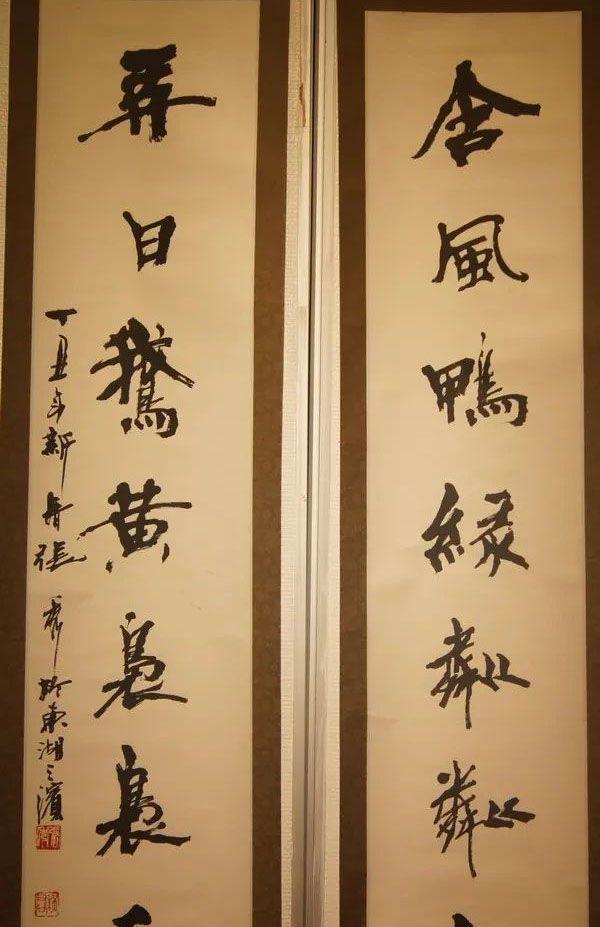 含風鴨緑粼粼
弄日鵞黄裊裊
丁丑年新春張於東湖之濱